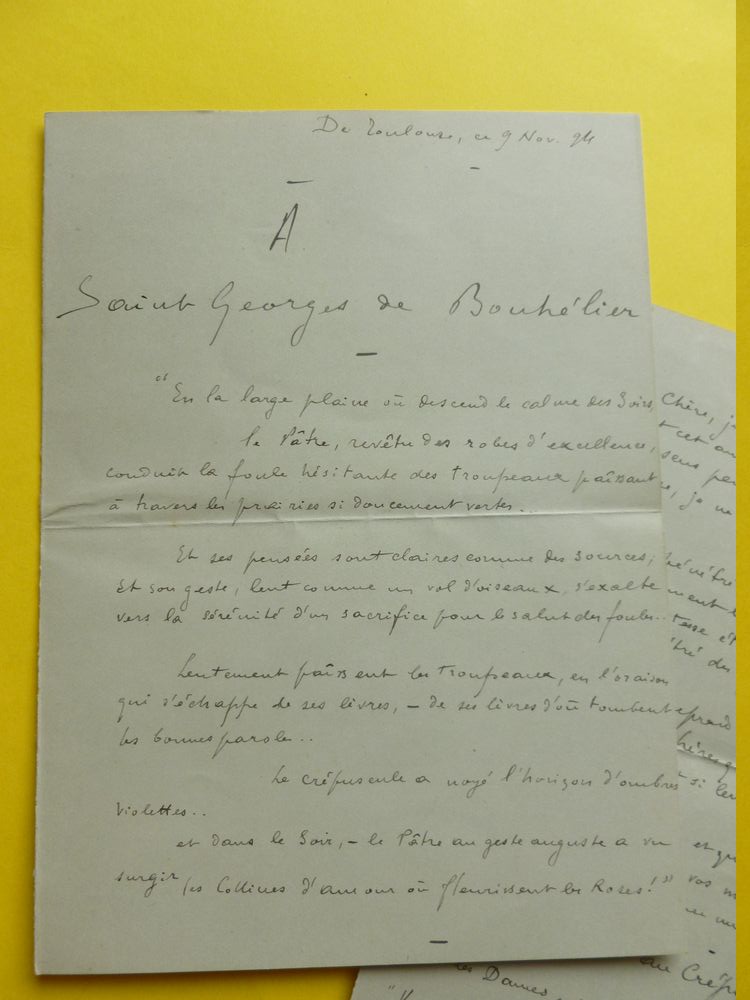 De Toulouse, ce 9 Nov. 94
–
A
Saint Georges de Bouhélier
–
"En la large plaine où descend le calme des Soirs,
le Pâtre, revêtu des robes d'excellence,
conduit la foule hésitante des troupeaux paissant
à travers les prairies si doucement vertes...
Et ses pensées sont claires comme des sources;
Et son geste, lent comme un vol d'oiseaux, s'exalte
vers la sérénité d'un sacrifice pour le salut des foules..
Lentement paissent les troupeaux, en l'oraison
qui s'échappe de ses livres, – de ses livres d'où tombent
les bonnes parole..
Le crépuscule a noyé l'horizon d'ombres
violettes..
et dans le Soir, – le Pâtre au geste auguste a vu
surgir les Collines d'amour où fleurissent les Roses!"
–
Chère, j
cet am
sens pe
je ne
ment
tesse et
été des
si le
et qu
vos m
–
au Crépu
les Dames